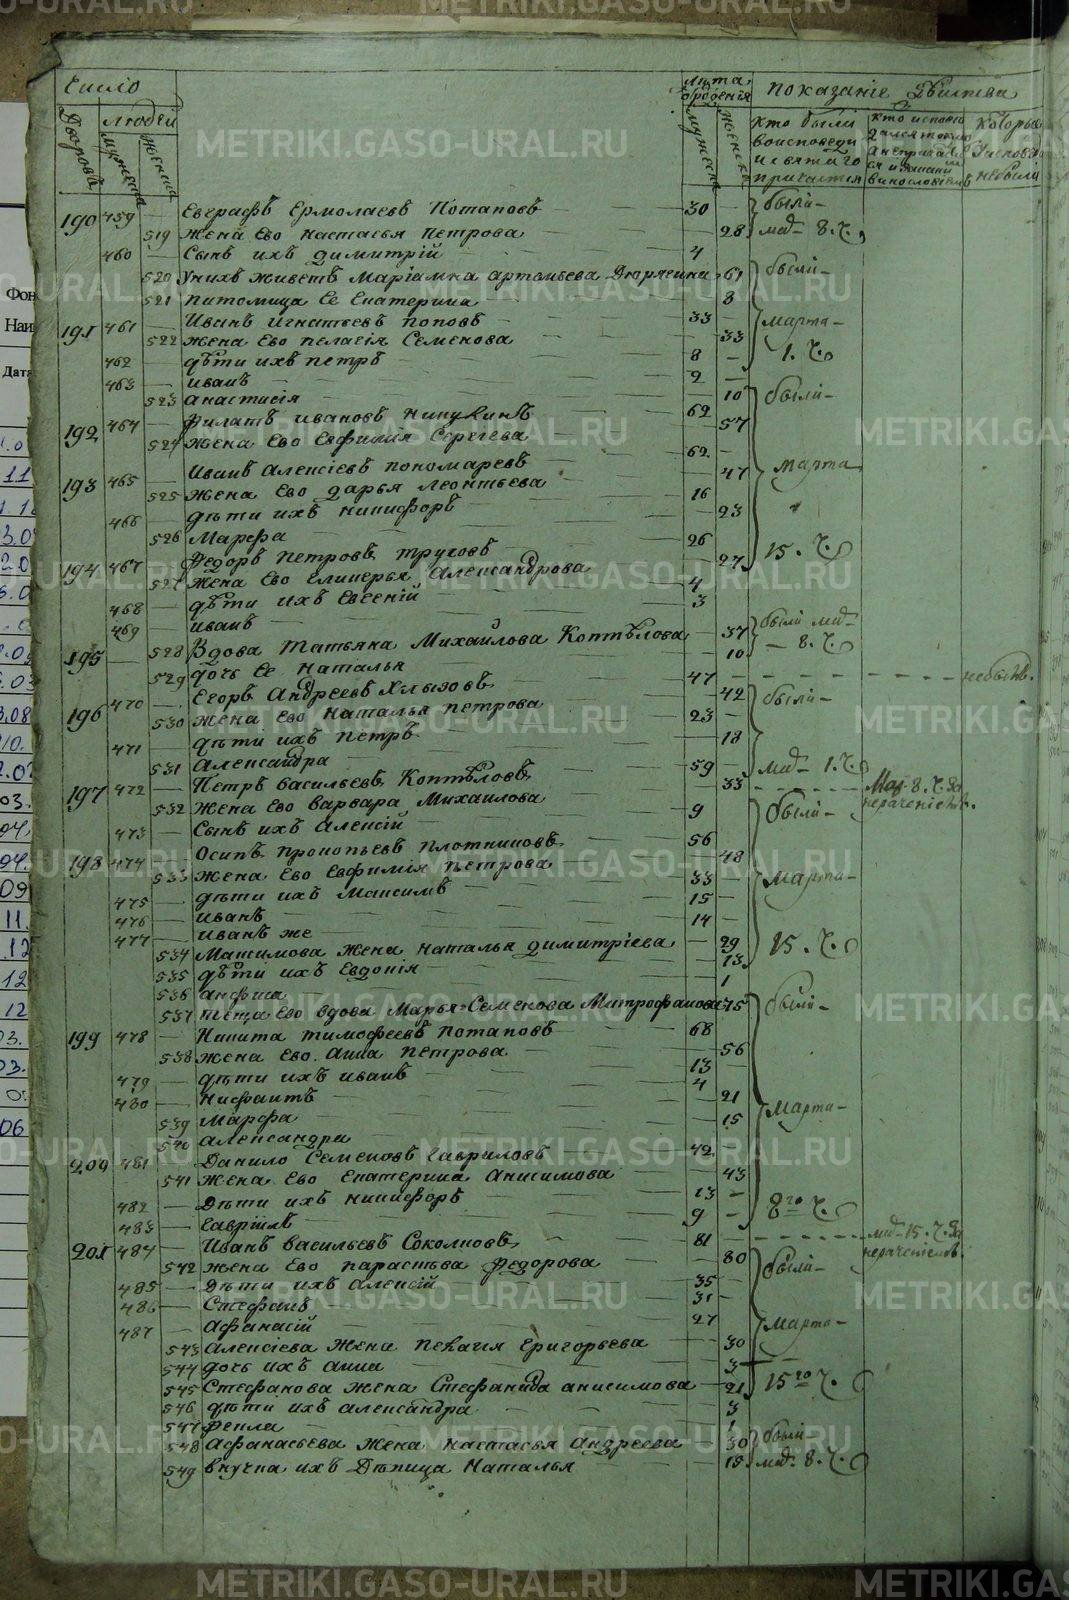 Число
Дворовъ
людей
мужеска
женска
лѣта
мужеска
женска
показаніе бытія
кто были
во исповеди
и святаго
причастія
190 459 — Евграфъ Ермолаевъ Потаповъ 30 — были
519 жена Ево настасья петрова — 28 мар 8. ч.
460 — Сынъ ихъ димитрій 4
520 у нихъ живетъ Маріамна артемьева 61 были
521 питомица Ее Екатерина 8
191 461 — Иванъ игнатьевъ поповъ 33 марта
522 жена Ево пелагія Семенова — 33
462 — дѣти ихъ петръ 8 — 1. ч.
463 — иванъ 2 —
523 анастасія 10 были
192 464 — Филатъ ивановъ 62
524 жена Ево Евфимія Сергеева 57
193 465 — Иванъ алексіевъ пономаревъ 62 — марта
525 жена Ево дарья леонтьева — 47
466 — дѣти ихъ никифоръ 16
526 Марфа — 23
194 467 — Федоръ петровъ 26 15. ч.
527 жена Ево Александрова — 27
468 — дѣти ихъ Евсевій 4
469 — иванъ 3
195 — 528 вдова татьяна Михайлова Коптѣлова — 37 были мар
529 дочь Ее Наталья — 10 8. ч.
196 470 — Егоръ андреевъ Хлызовъ 47 — небылъ.
530 жена Ево наталья петрова — 42 были
471 — дѣти ихъ петръ 23 —
531 александра — 18
197 472 — Петръ васильевъ Коптѣловъ 59 — мар 1. ч.
532 жена Ево варвара Михаилова — 33 мар 8. ч. за нераченіемъ.
473 — Сынъ ихъ алексій 9 были
198 474 — Осипъ прокопьевъ плотниковъ 56
533 жена Ево Евфимія петрова — 48
475 — дѣти ихъ Максимъ 33 — марта
476 — иванъ 15 —
477 — иванъ же 14 —
534 Максимова жена наталья димитріева — 29 15. ч.
535 дѣти ихъ Евдокія — 13
536 анфиса 1
537 теща Ево вдова Марья Семенова Митрофанова 75 были
199 478 — Никита тимофеевъ потаповъ 68
538 жена Ево анна петрова — 56
479 — дѣти ихъ иванъ 13 —
480 — 4
539 Марфа — 21 марта
540 александра — 15
200 481 — Данило Семеновъ гавриловъ 42
541 жена Ево Екатерина анисимова — 43
482 — дѣти ихъ никифоръ 13 — 8го ч.
483 — гавріилъ 9 —
201 484 — Иванъ васильевъ Соколновъ 81 мар 15. ч. за нераченіемъ.
542 жена Ево парасковья федорова — 80 были
485 — дѣти ихъ алексій 35 —
486 — Стефанъ 31 —
487 — афанасій 27 марта
543 алексіева жена пелагія григорьева — 30
544 дочь ихъ анна — 3
545 Стефанова жена Стефанида анисимова — 21 15го ч.
546 дѣти ихъ александра — 3
547 фекла 1
548 афанасьева жена настасья андреева — 30 были
549 внучка ихъ дѣвица наталья — 15 мар. 8. ч.
METRIKI.GASO-URAL.RU